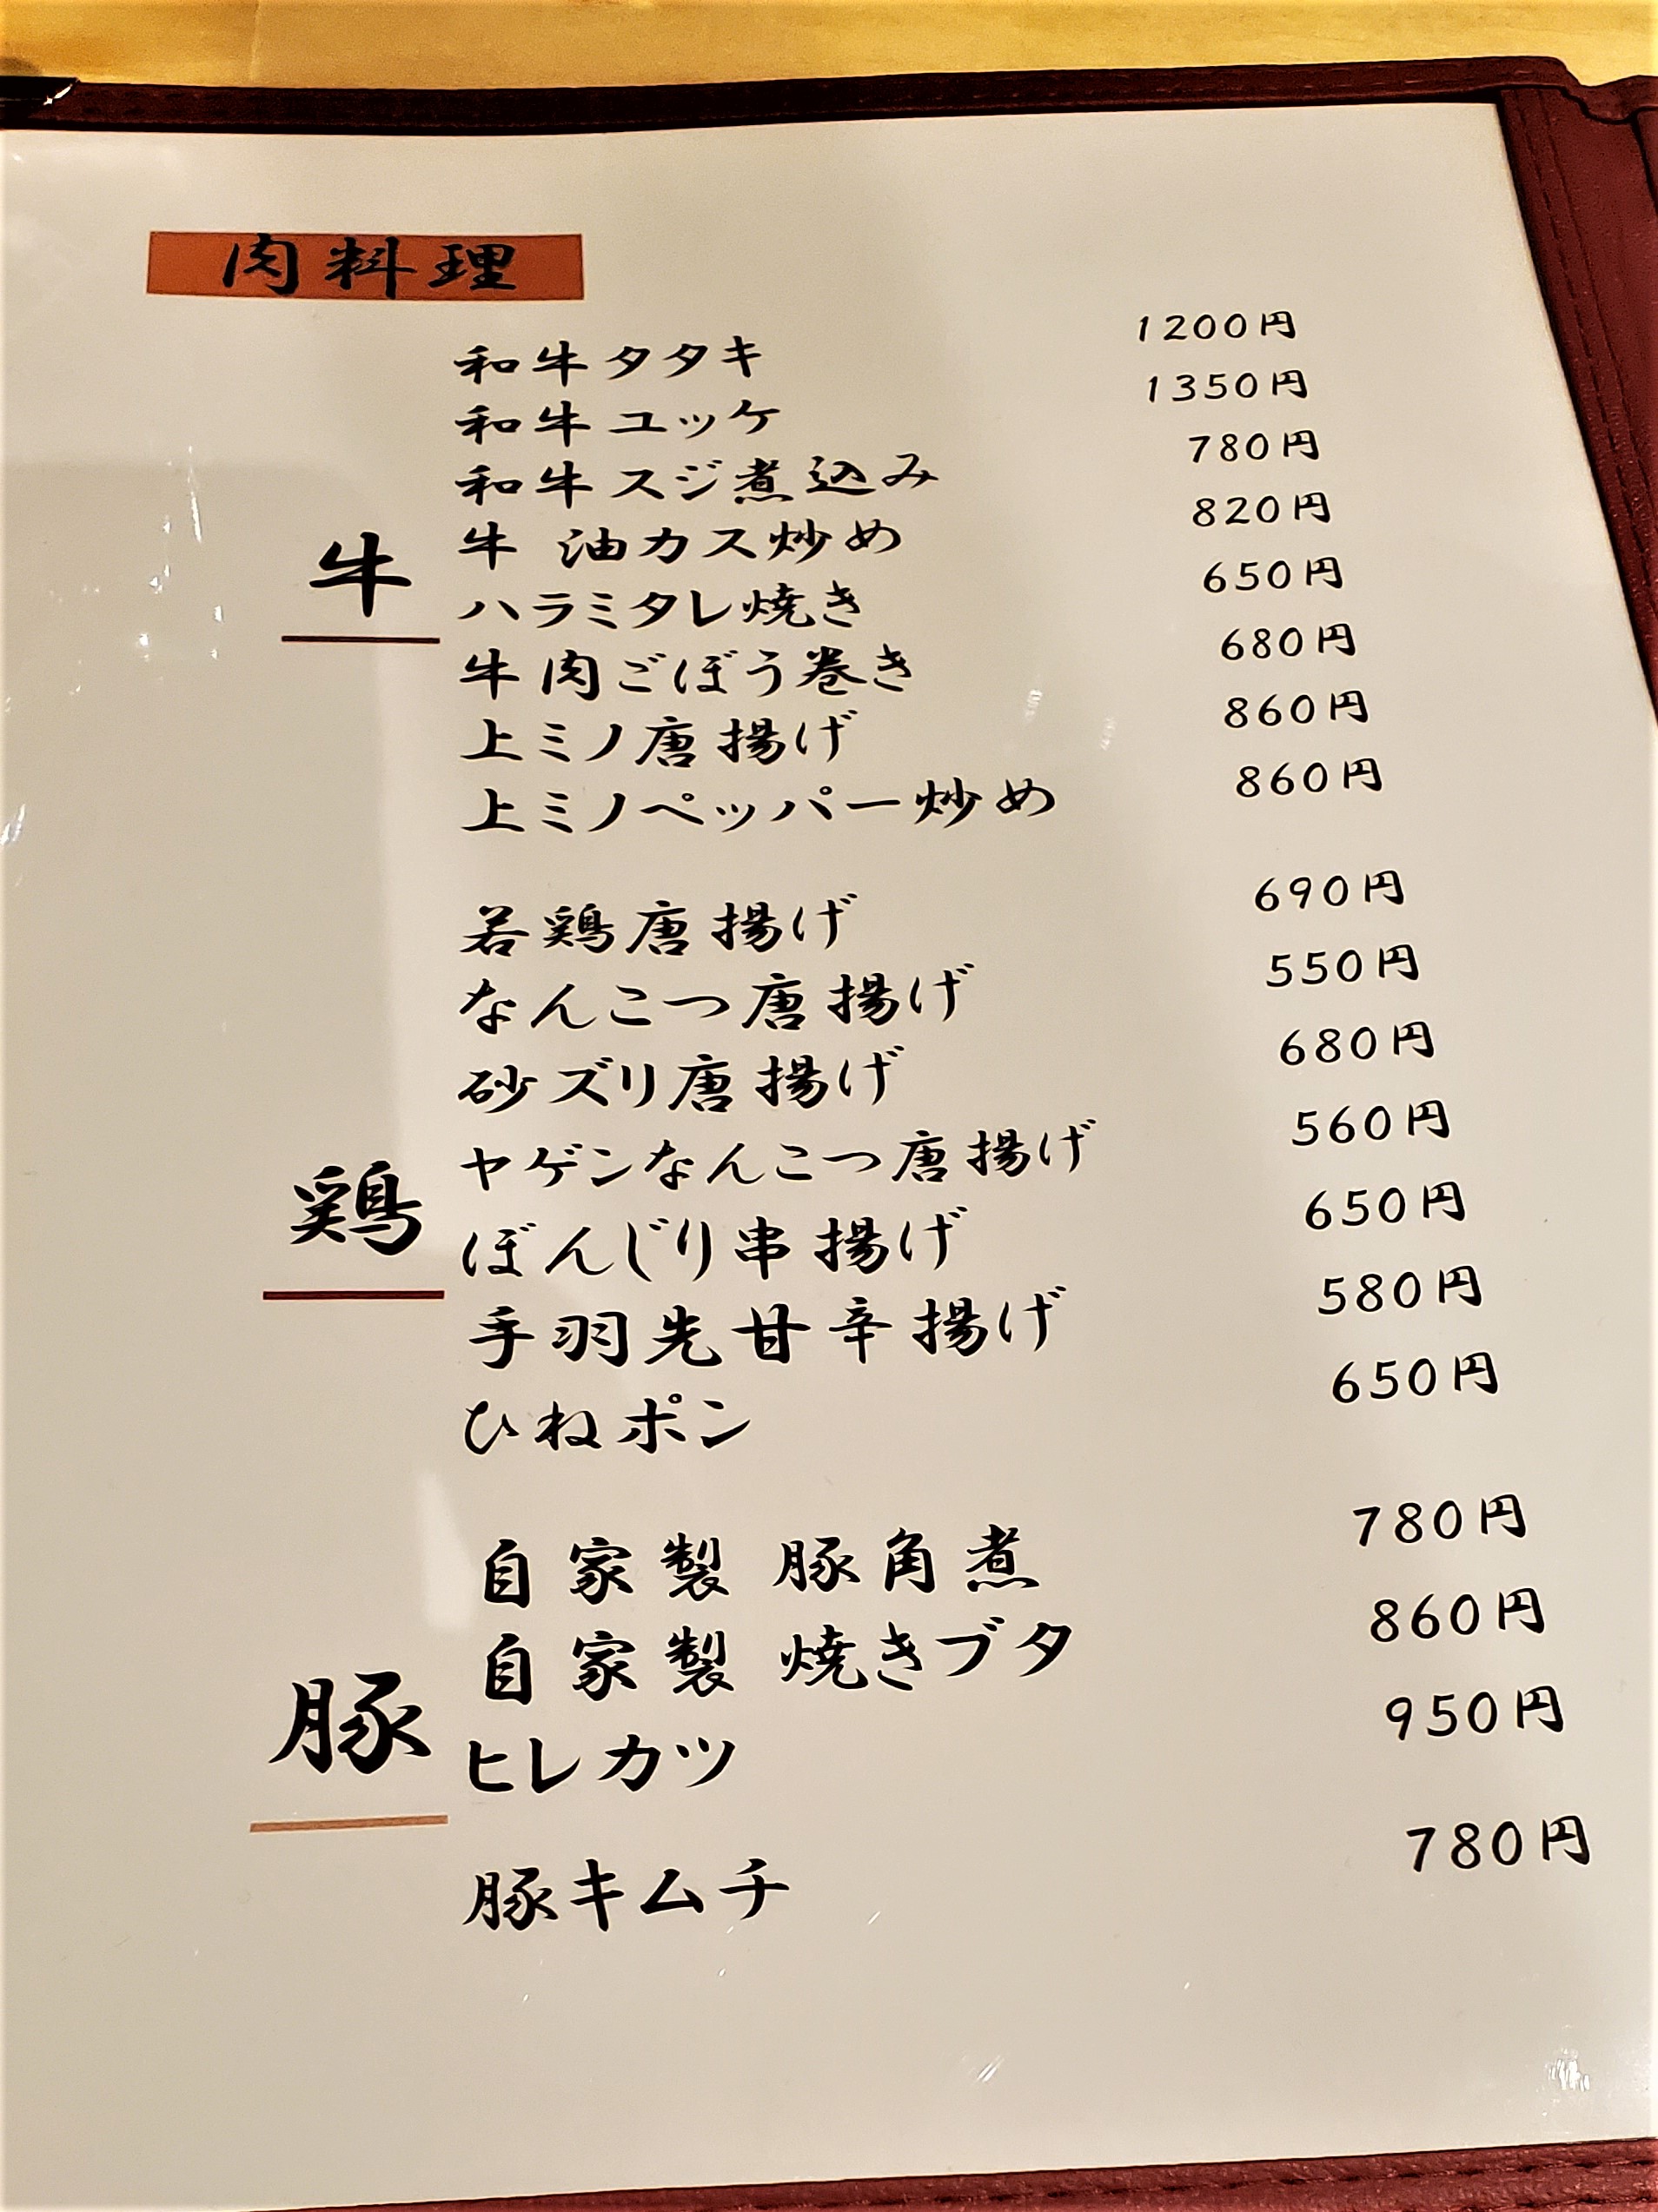 肉料理
牛
和牛タタキ 1200円
和牛ユッケ 1350円
和牛スジ煮込み 780円
牛 油カス炒め 820円
ハラミタレ焼き 650円
牛肉ごぼう巻き 680円
上ミノ唐揚げ 860円
上ミノペッパー炒め 860円
鶏
若鶏唐揚げ 690円
なんこつ唐揚げ 550円
砂ズリ唐揚げ 680円
ヤゲンなんこつ唐揚げ 560円
ぼんじり串揚げ 650円
手羽先甘辛揚げ 580円
ひねポン 650円
豚
自家製 豚角煮 780円
自家製 焼きブタ 860円
ヒレカツ 950円
豚キムチ 780円